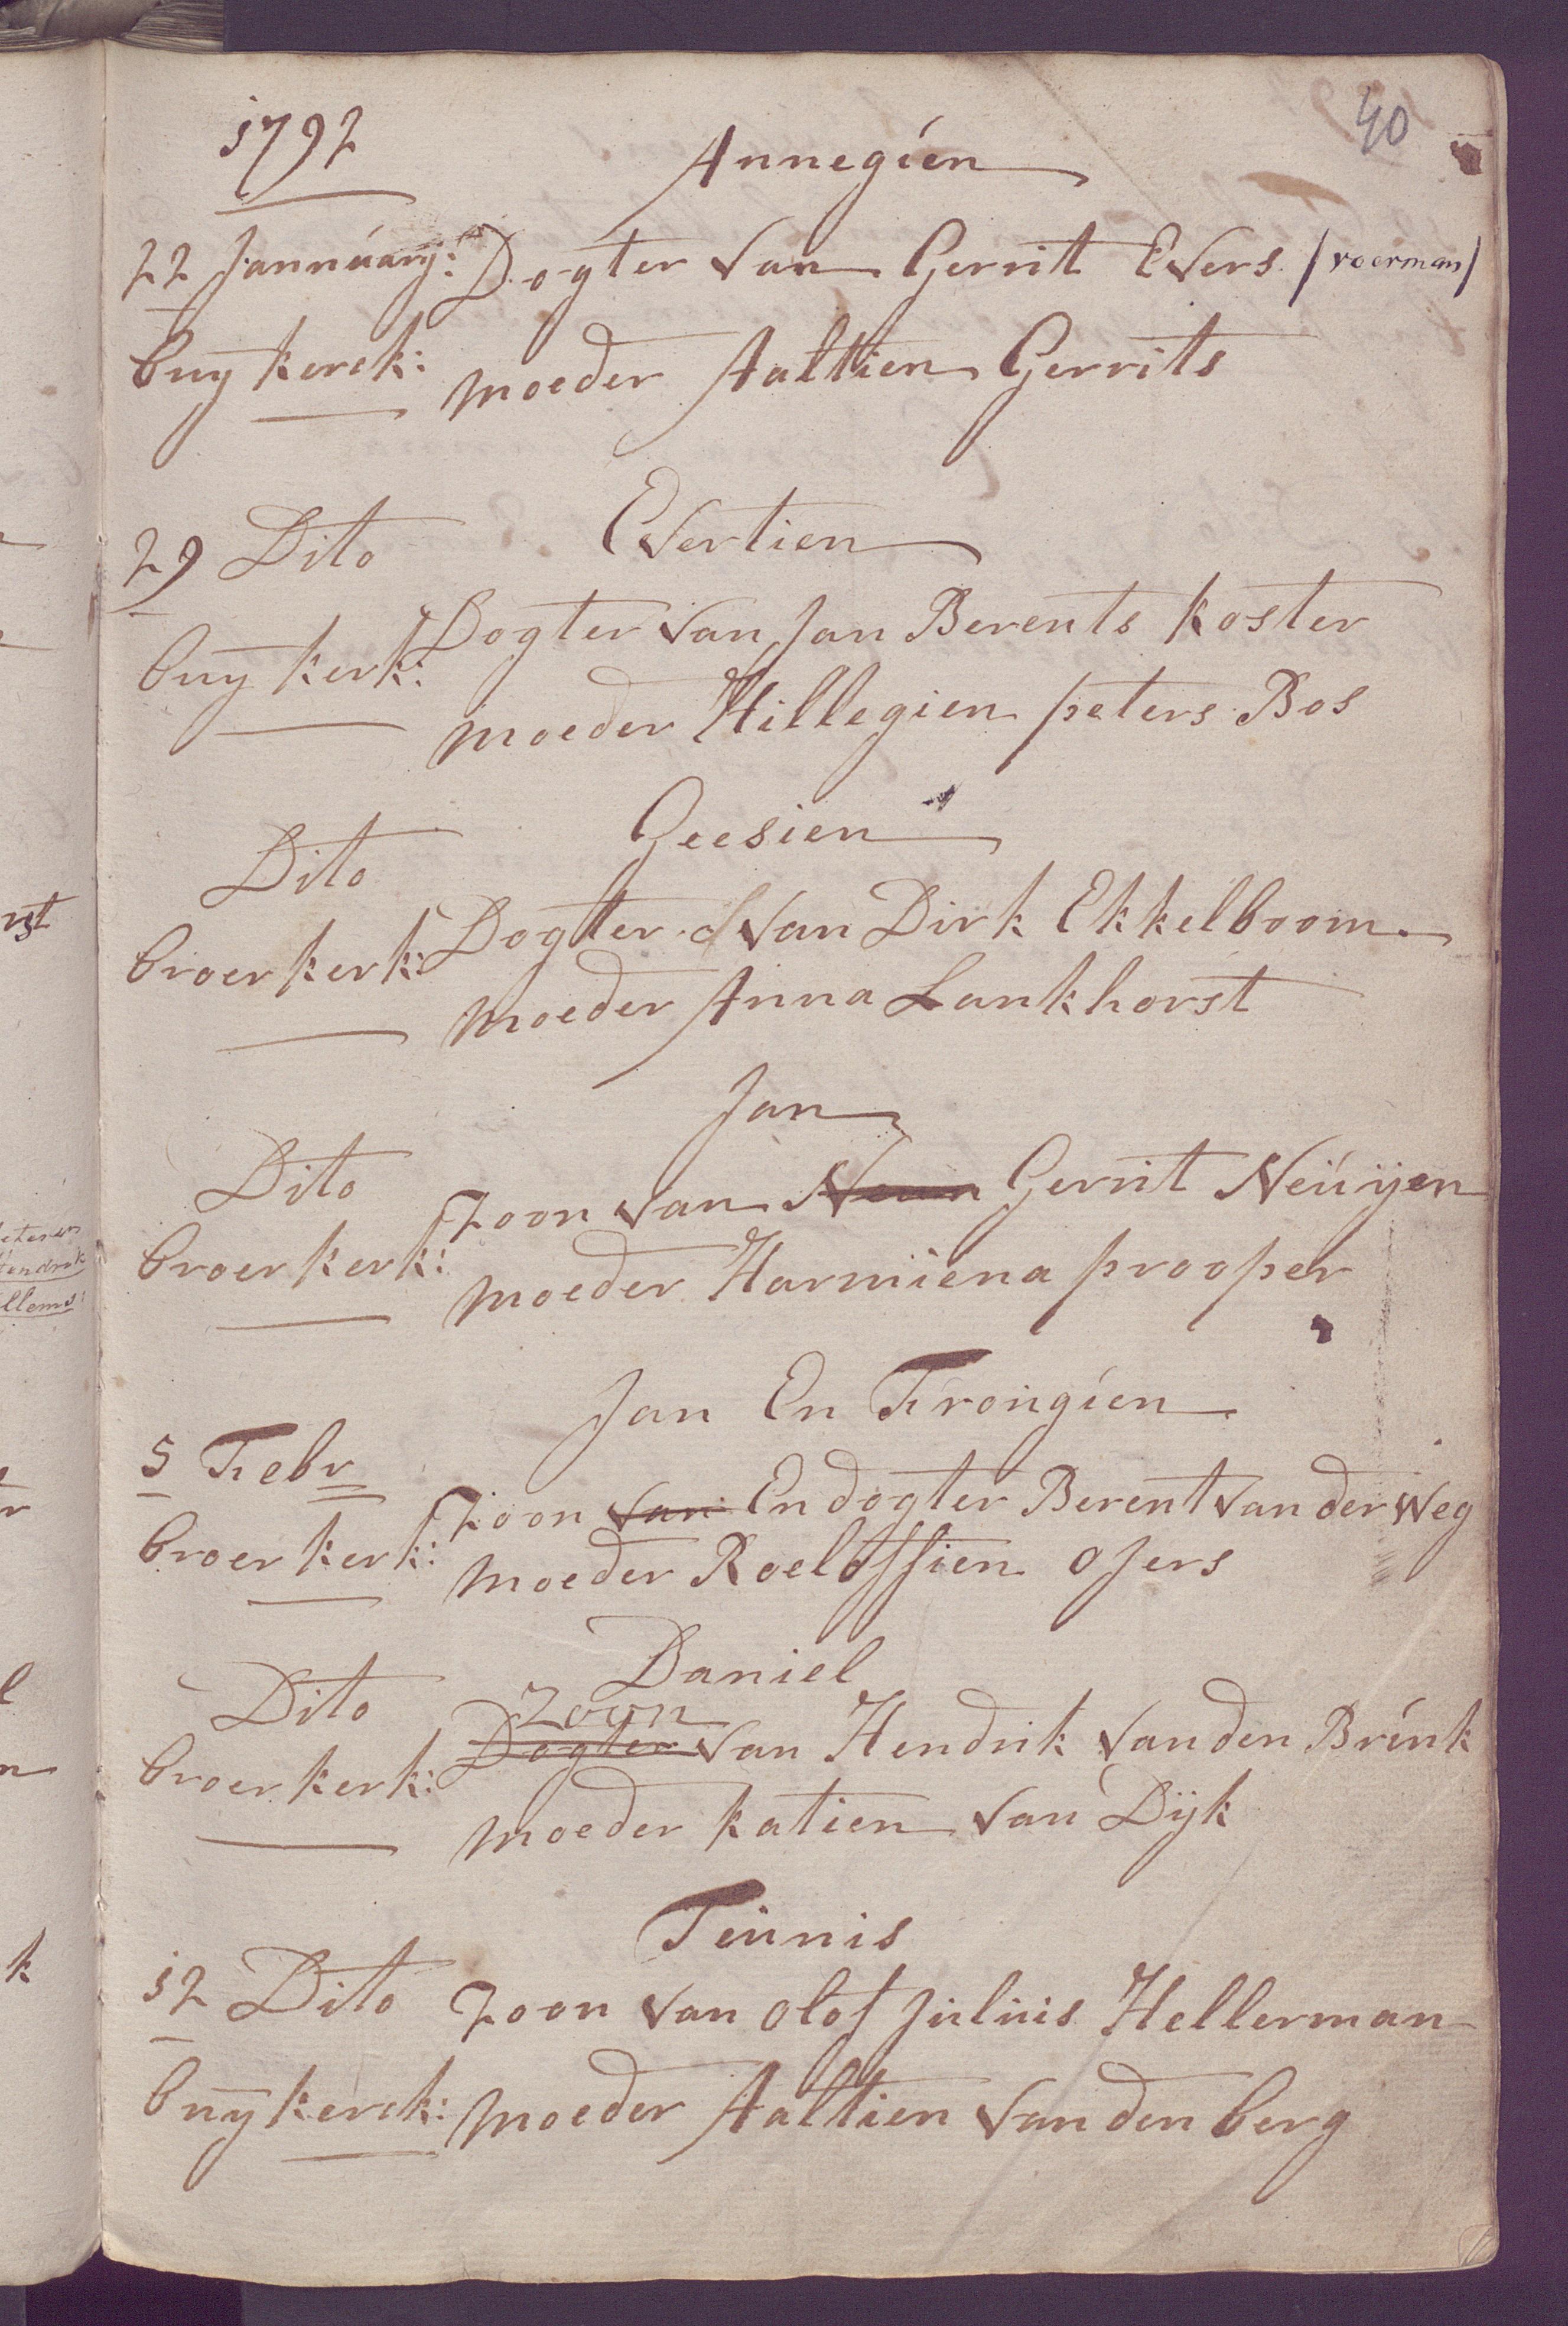 40
1792
Annegien
22 Jannúarij: Dogter van Gerrit Evers (voerman)
buy kerck: moeder Aaltien Gerrits
29 Dito Evertien
buy kerk: Dogter van Jan Berents koster
moeder Hillegien peters Bos
Geesien
Dito
broer kerk: Dogter van Dirk Ekkelboom
moeder Anna Lankhorst
Jan
Dito
Zoon van Gerrit Neúijen
broer kerk: moeder Harmiena prooper
Jan En Frongien
5 Febr
Zoon van En dogter Berent van der weg
broer kerk: moeder Roeloffien ofers
Daniel
Dito Zoon
Dogter van Hendrik van den Brink
broer kerk:
moeder katien van Dijk
Teunis
12 Dito Zoon van olof Julius Hellerman
buy kerck: moeder Aaltien van den berg